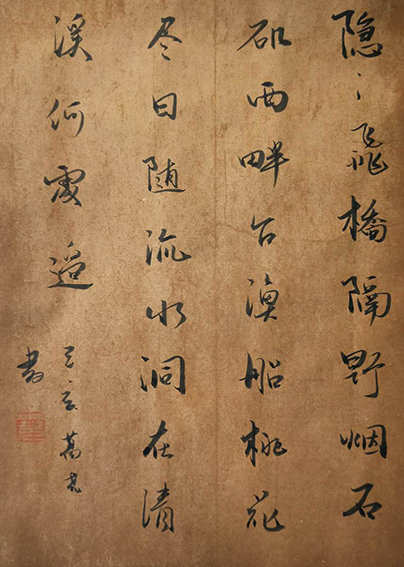 隐〻飛橋隔野烟石
矶西畔问渔船桃花
尽日随流水洞在清
溪何處邊
己亥
书